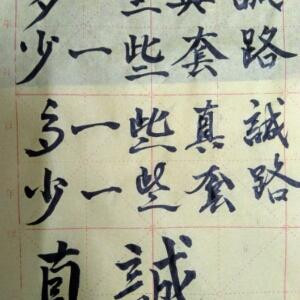 多些真誠
少一些套路
多一些真誠
少一些套路
真誠